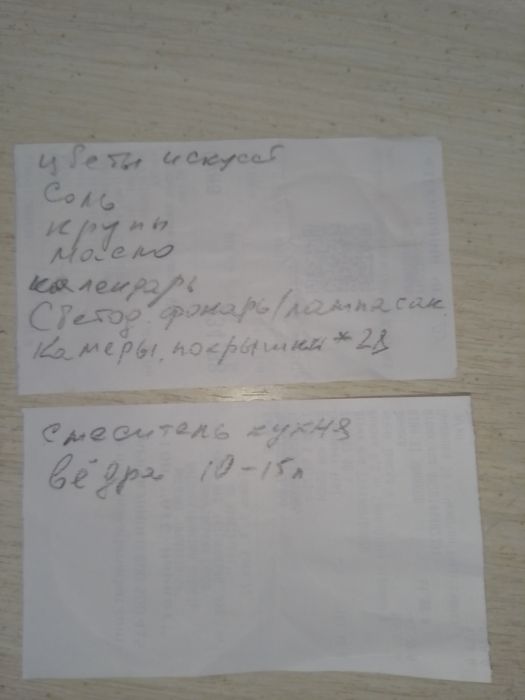 цветы искуств
Соль
крупы
масло
календарь
Светод. фонарь/лампа сак.
Камеры, покрышки * 28
смеситель кухня
вёдра 10-15л